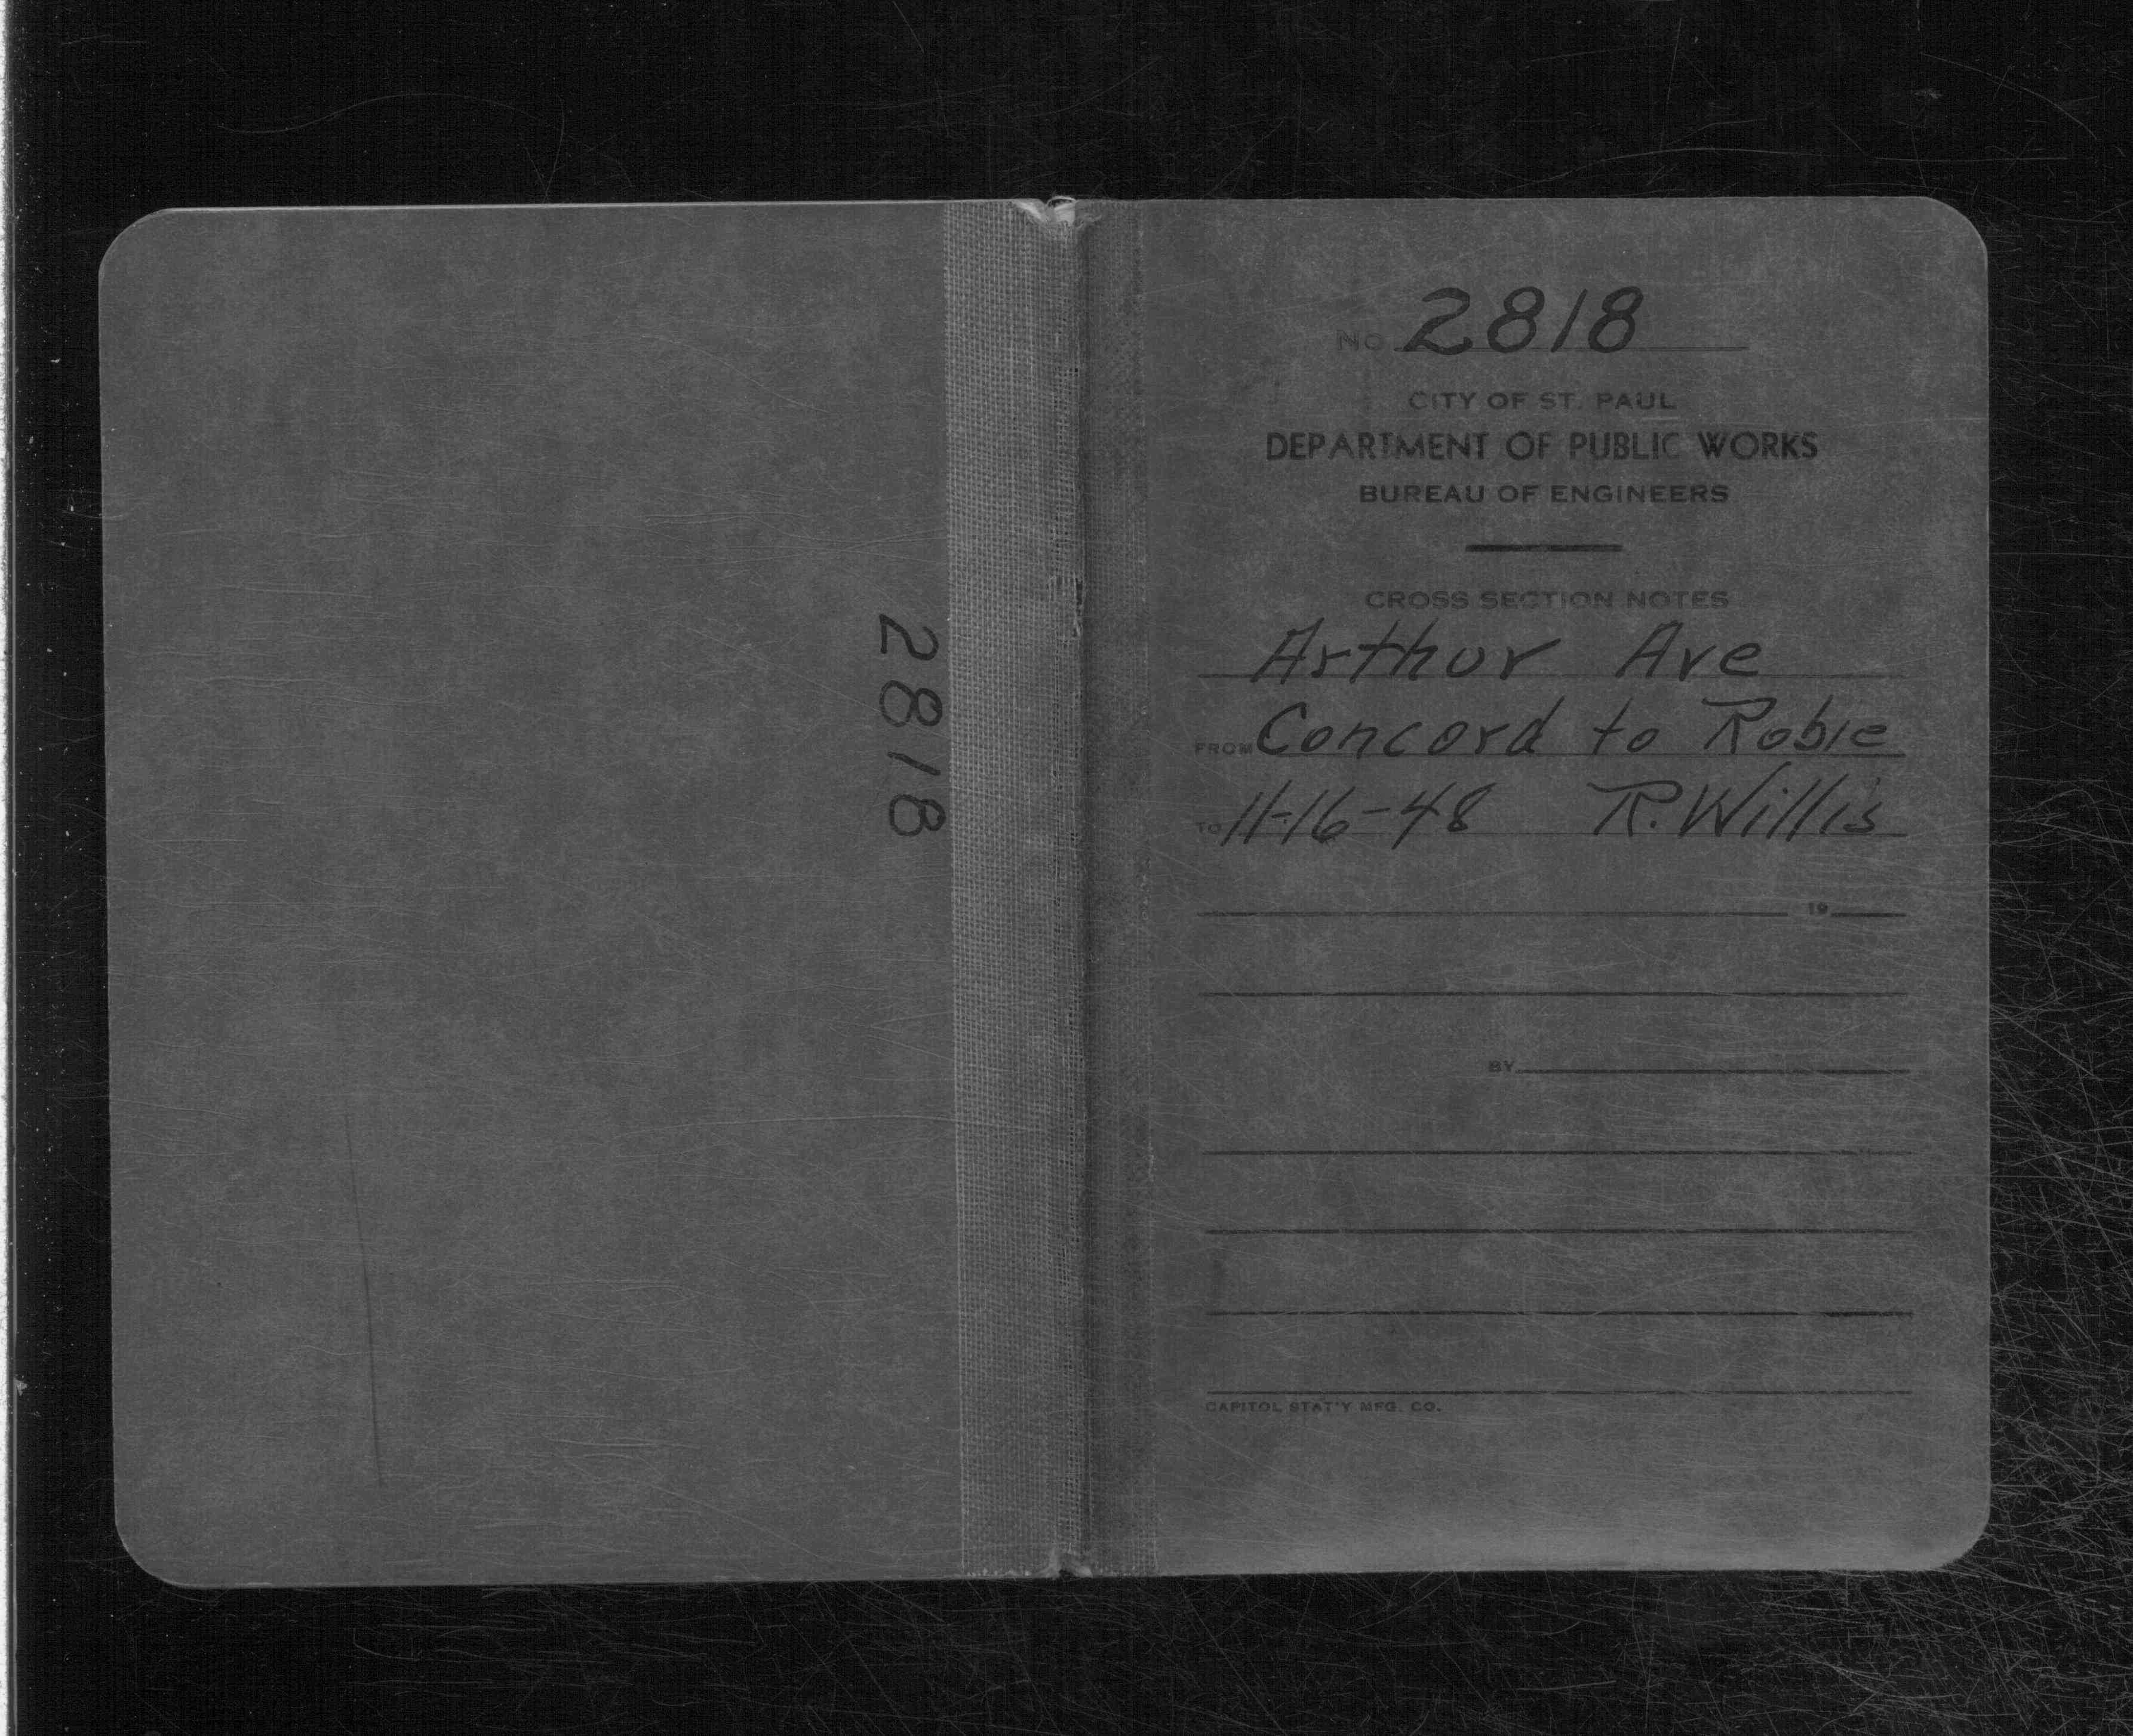 2818
No. 2818
CITY OF ST. PAUL
DEPARTMENT OF PUBLIC WORKS
BUREAU OF ENGINEERS
CROSS SECTION NOTES
Arthur Ave
FROM Concord to Robie
TO 11-16-48 R. Willis
19
BY
CAPITOL STAT'Y MFG. CO.